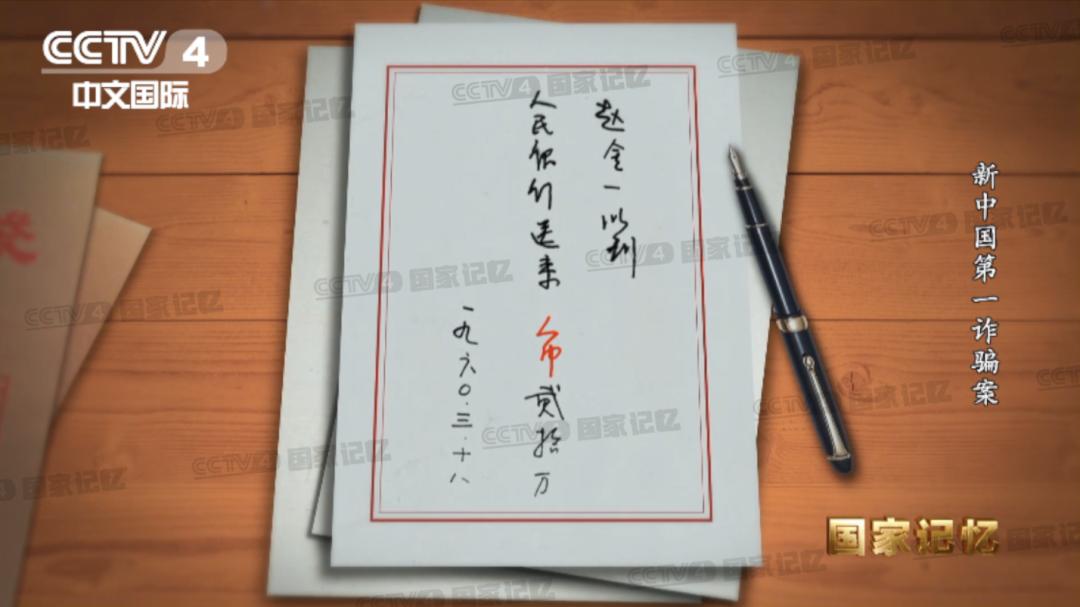 CCTV 4
中文国际
赵全一收到
人民银行送来人币贰拾万
一九六〇.三.十八
新中国第一诈骗案
国家记忆
CCTV4 国家记忆